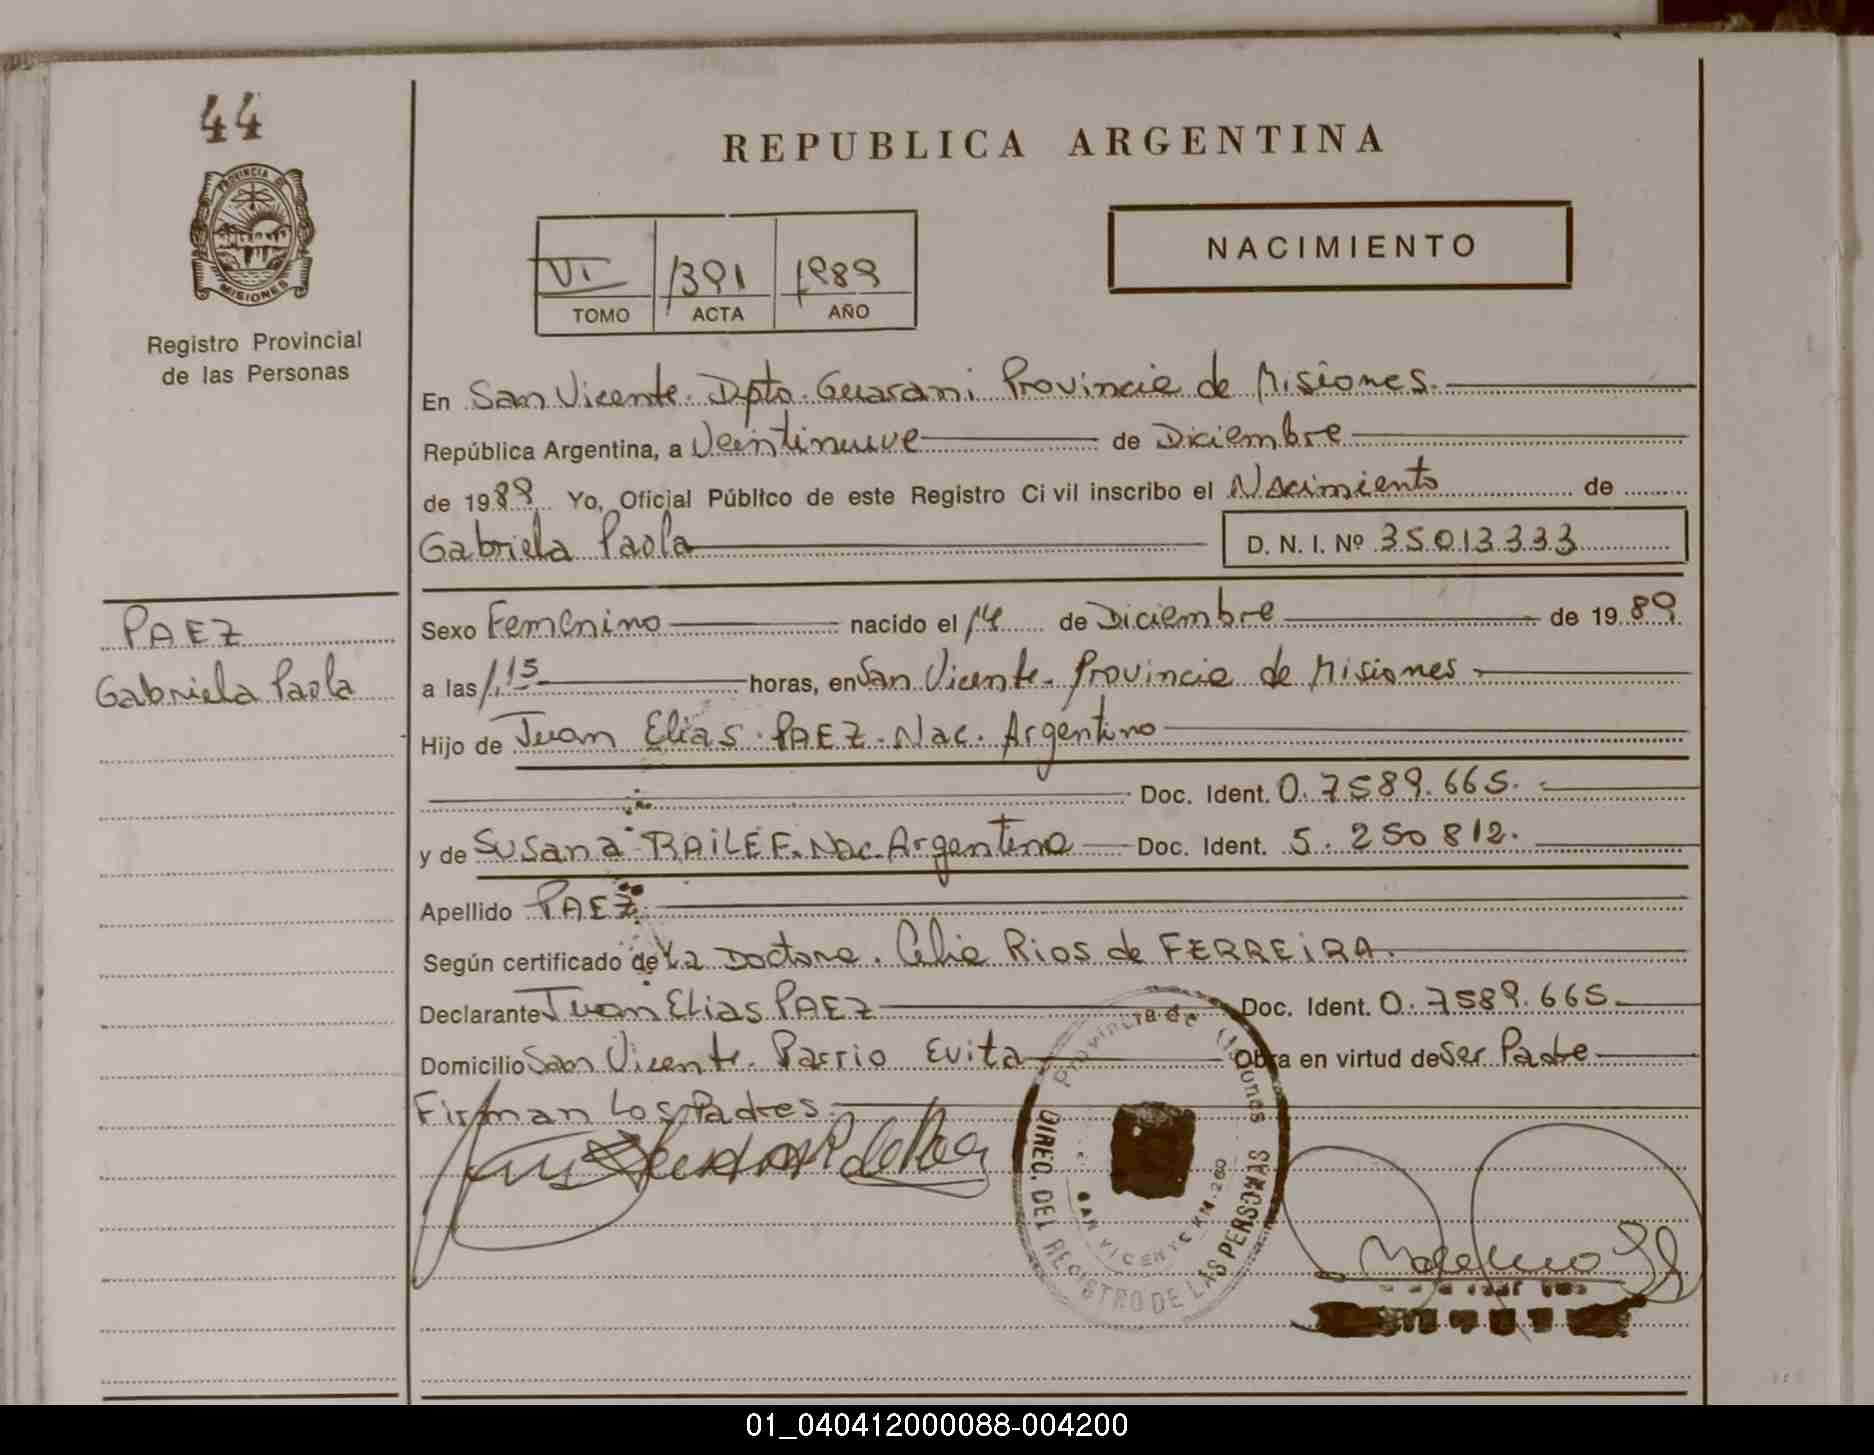 44
REPUBLICA ARGENTINA
PROVINCIA DE
MISIONES
Registro Provincial
de las Personas
NACIMIENTO
VI 1391 1989
TOMO ACTA AÑO
En San Vicente. Dpto. Guarani Provincia de Misiones.
República Argentina, a Veintinueve de Diciembre
de 1989 Yo, Oficial Público de este Registro Civil inscribo el Nacimiento de
Gabriela Paola D. N. I. Nº 35013333
PAEZ
Gabriela Paola
Sexo Femenino nacido el 14 de Diciembre de 1989
a las 1,15 horas, en San Vicente. Provincia de Misiones
Hijo de Juan Elias PAEZ. Nac. Argentino
Doc. Ident. 0.7589.665.
y de Susana RAILEF. Nac. Argentina Doc. Ident. 5.250812.
Apellido PAEZ
Según certificado de La Doctora. Celia Rios de FERREIRA.
Declarante Juan Elias PAEZ Doc. Ident. 0.7589.665
Domicilio San Vicente. Barrio Evita Obra en virtud de Ser Padre
Firman Los Padres.
Provincia de Misiones
DIREC. DEL REGISTRO DE LAS PERSONAS
SAN VICENTE KM. 260
01_040412000088-004200